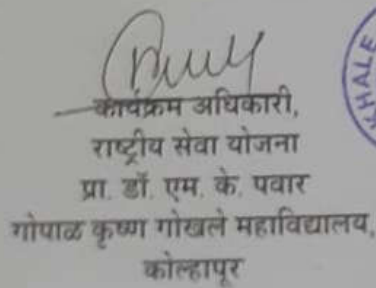 कार्यक्रम अधिकारी,
राष्ट्रीय सेवा योजना
प्रा. डॉ. एम. के. पवार
गोपाळ कृष्ण गोखले महाविद्यालय,
कोल्हापूर
KHALE